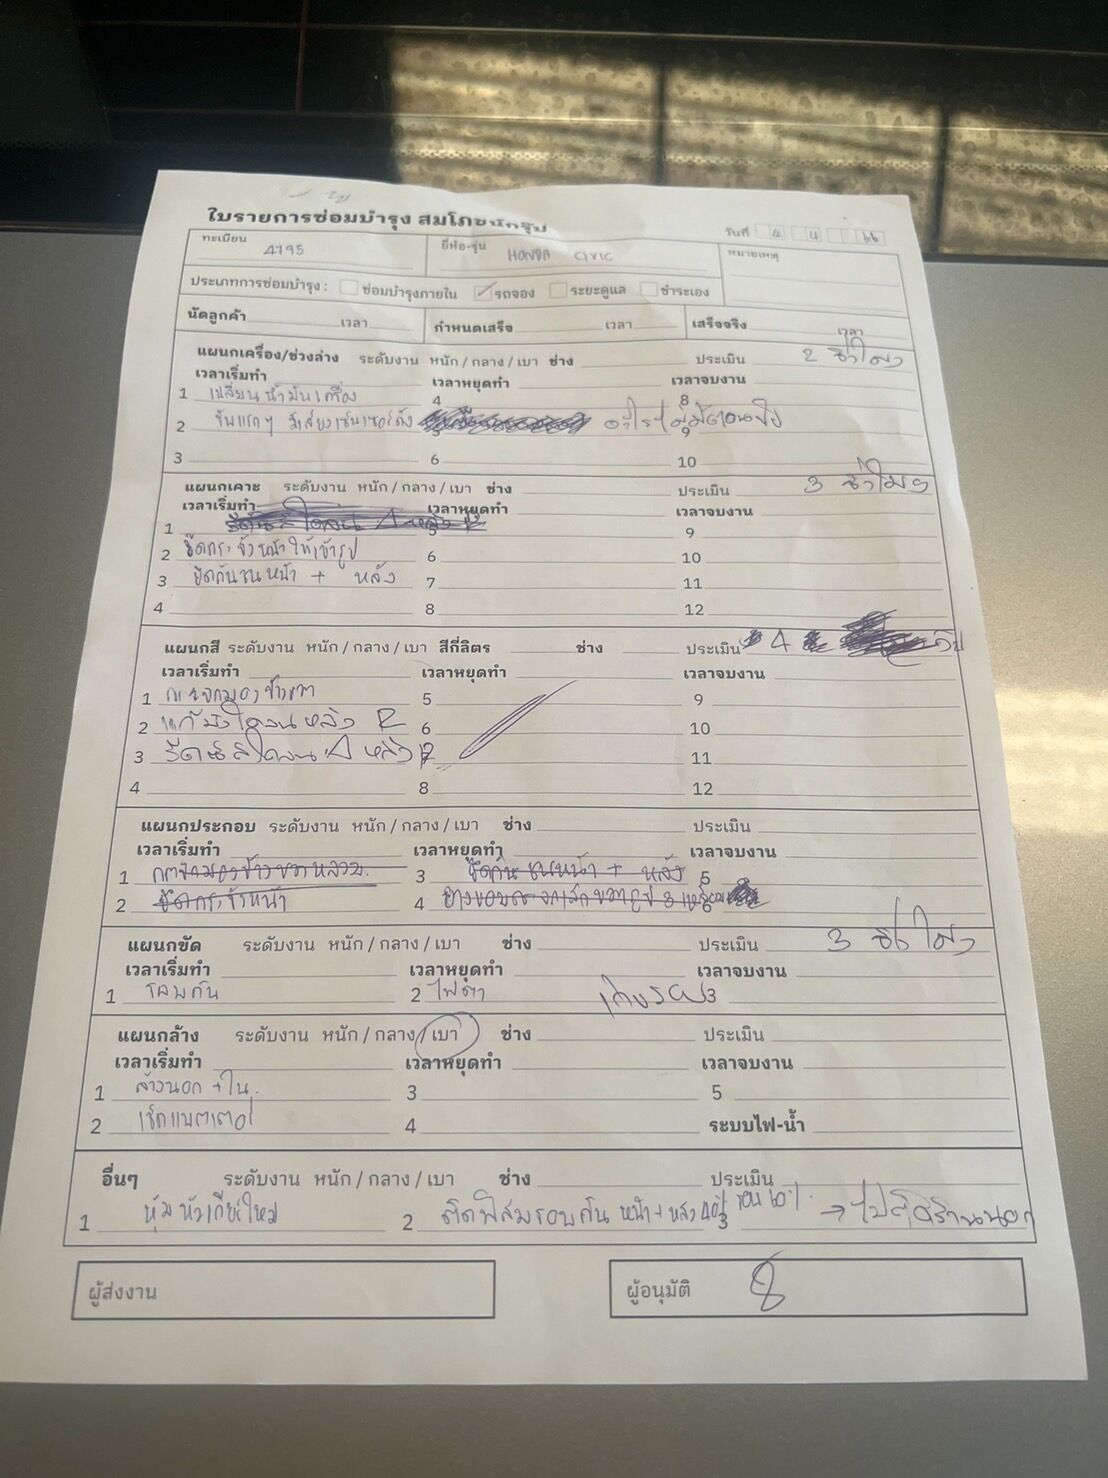 ใบรายการซ่อมบำรุง สมโภชน์กรุ๊ป
วันที่ 4 4 66
ทะเบียน 4795 ยี่ห้อ-รุ่น HONDA CIVIC หมายเหตุ
ประเภทการซ่อมบำรุง : ซ่อมบำรุงภายใน รถจอง ระยะดูแล ชำระเอง
นัดลูกค้า เวลา กำหนดเสร็จ เวลา เสร็จจริง เวลา
แผนกเครื่อง/ช่วงล่าง ระดับงาน หนัก / กลาง / เบา ช่าง ประเมิน 2 ชั่วโมง
เวลาเริ่มทำ เวลาหยุดทำ เวลาจบงาน
1 เปลี่ยนน้ำมันเครื่อง 4 8
2 ขับแรกๆ มีเสียงเซ็นเซอร์ดัง 5 9
3 6 10
แผนกเคาะ ระดับงาน หนัก / กลาง / เบา ช่าง ประเมิน 3 ชั่วโมง
เวลาเริ่มทำ เวลาหยุดทำ เวลาจบงาน
1 5 9
2 ยึดกระจังหน้าให้เข้ารูป 6 10
3 ยึดกันชนหน้า + หลัง 7 11
4 8 12
แผนกสี ระดับงาน หนัก / กลาง / เบา สีกี่ลิตร ช่าง ประเมิน 4
เวลาเริ่มทำ เวลาหยุดทำ เวลาจบงาน
1 กระจกมองข้างขวา 5 9
2 แก้มบังโคลนหลัง R 6 10
3 รีดบังโคลน หลัง R 7 11
4 8 12
แผนกประกอบ ระดับงาน หนัก / กลาง / เบา ช่าง ประเมิน
เวลาเริ่มทำ เวลาหยุดทำ เวลาจบงาน
1 3 ยึดกันชนหน้า + หลัง 5
2 ยึดกระจังหน้า 4 6
แผนกขัด ระดับงาน หนัก / กลาง / เบา ช่าง ประเมิน 3 ชั่วโมง
เวลาเริ่มทำ เวลาหยุดทำ เวลาจบงาน
1 รอบคัน 2 ไฟตา เก็บรอบ 3
แผนกล้าง ระดับงาน หนัก / กลาง / เบา ช่าง ประเมิน
เวลาเริ่มทำ เวลาหยุดทำ เวลาจบงาน
1 ล้างนอก + ใน 3 5
2 เช็คแบตเตอรี่ 4 ระบบไฟ-น้ำ
อื่นๆ ระดับงาน หนัก / กลาง / เบา ช่าง ประเมิน
1 หุ้มหัวเกียร์ใหม่ 2 ติดฟิล์มรอบคัน หน้า + หลัง 40% รอบ 60% 3 → ไปที่ร้านนอก
ผู้ส่งงาน ผู้อนุมัติ